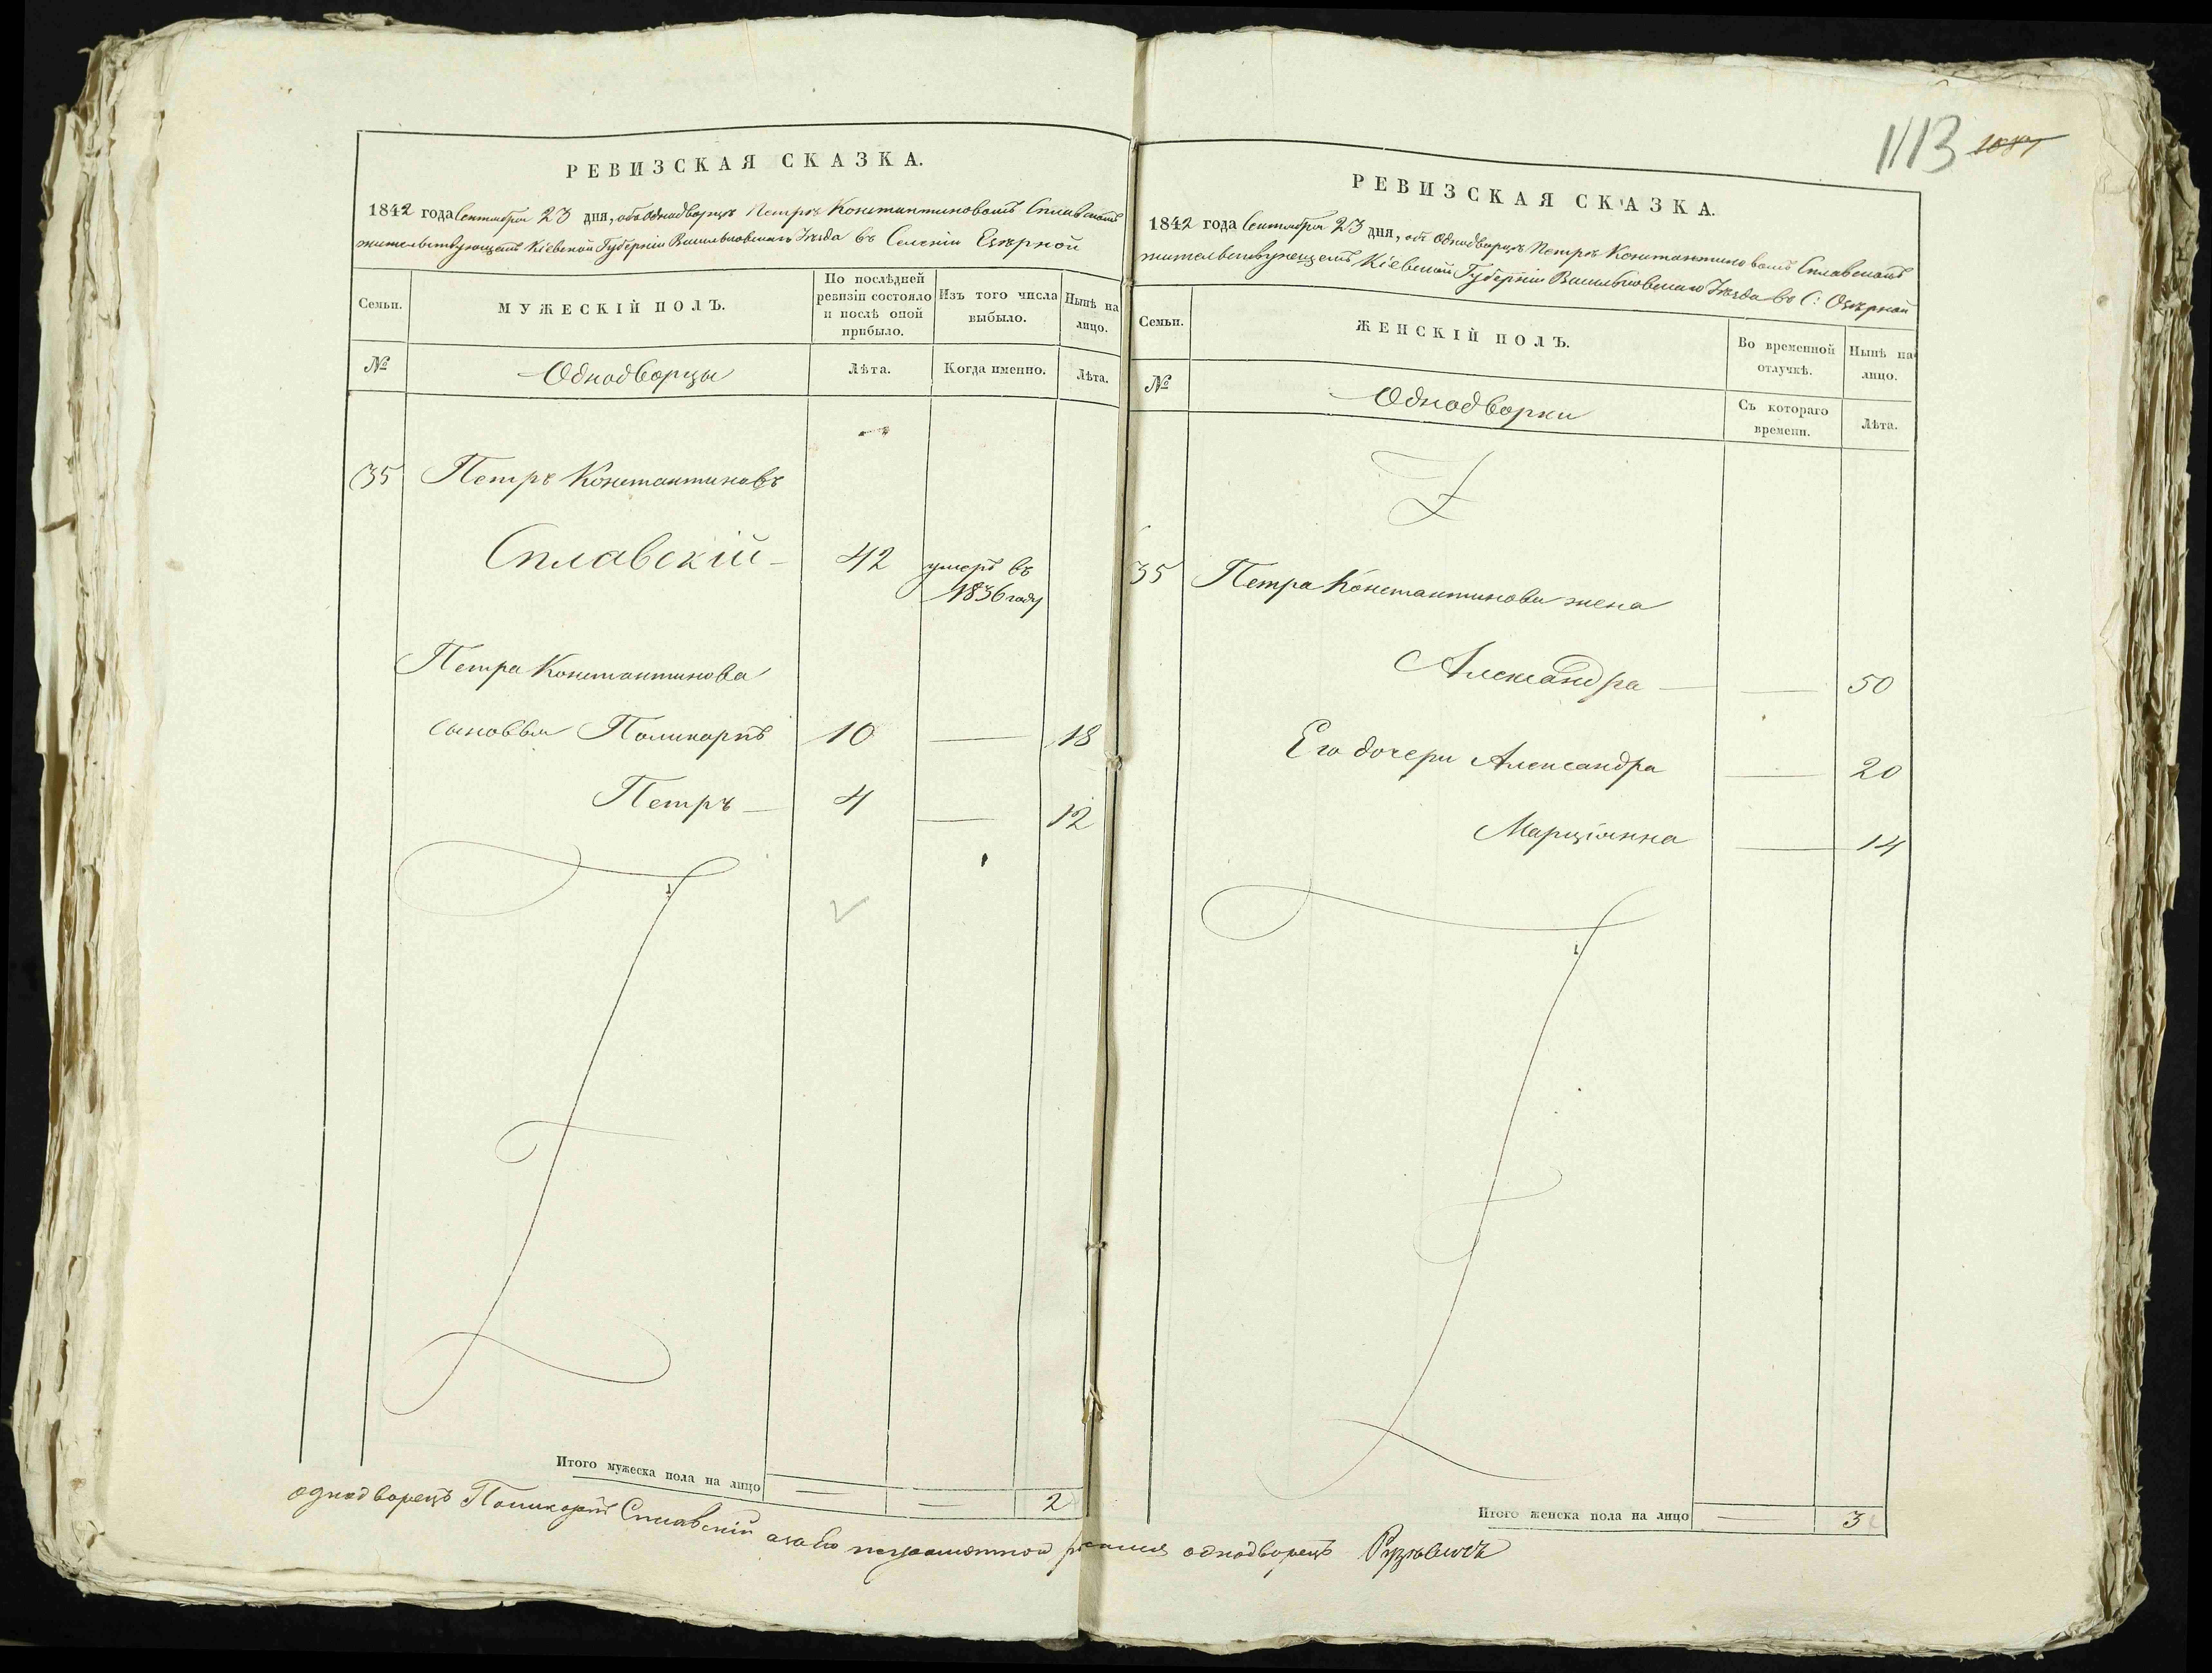 РЕВИЗСКАЯ СКАЗКА.
1842 года Сентября 23 дня, объ Однодворцѣ Петрѣ Константиновомъ Сплавскомъ
жительствующемъ Кіевской Губерніи Васильковскаго Уѣзда въ Селеніи Езѣрной
Семьи.
МУЖЕСКІЙ ПОЛЪ.
По послѣдней ревизіи состояло и послѣ оной прибыло.
Изъ того числа выбыло.
Нынѣ на лицо.
№
Однодворцы
Лѣта.
Когда именно.
Лѣта.
35 Петръ Константиновъ
Сплавскій 42 умеръ въ
1836 году
Петра Константинова
сыновья Поликарпъ 10 — 18
Петръ — 4 — 12
Итого мужеска пола на лицо — — 2
1113 1087
РЕВИЗСКАЯ СКАЗКА.
1842 года Сентября 23 дня, объ Однодворцѣ Петрѣ Константиновомъ Сплавскомъ
жительствующемъ Кіевской Губерніи Васильковскаго Уѣзда въ С: Озѣрной
Семьи.
ЖЕНСКІЙ ПОЛЪ.
Во временной отлучкѣ.
Нынѣ на лицо.
№
Однодворки
Съ котораго времени.
Лѣта.
35 Петра Константинова жена
Александра — — 50
Его дочери Александра — 20
Марціянна — 14
Итого женска пола на лицо — 3
однодворецъ Поликарпъ Сплавскій а за его неграмотной однодворецъ